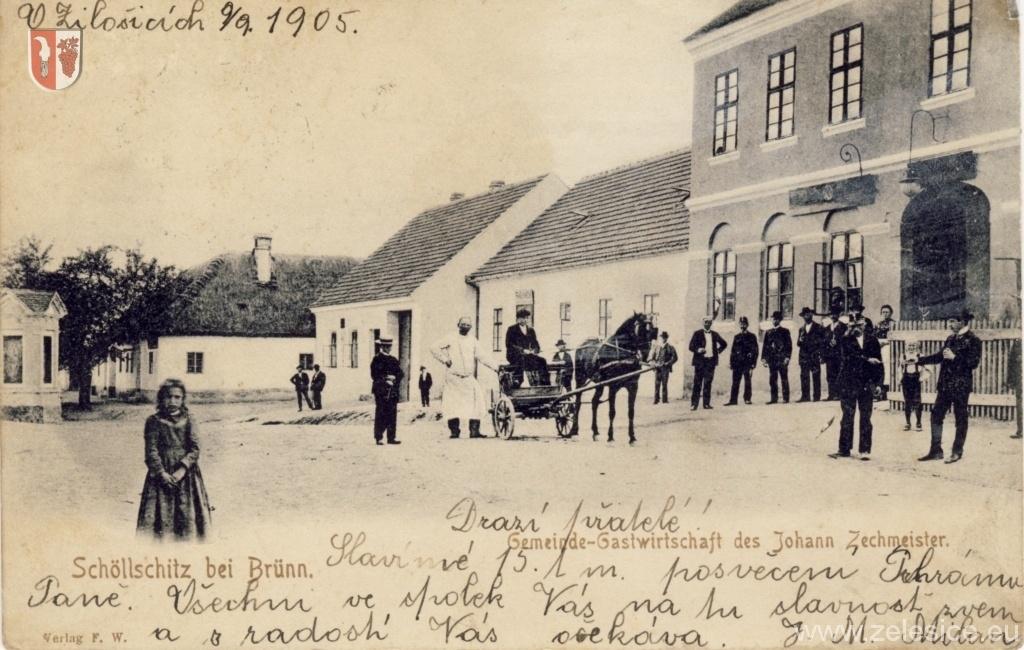 V Žilošicích 9/9. 1905.
Drazí přátelé!
Gemeinde-Gastwirtschaft des Johann Zechmeister.
Schöllschitz bei Brünn.
Slavímé 15. t m. posvěcení Chrámu
Paně. Všechni ve spolek Vás na tu slavnosť zvem
a s radostí Vás očekáva. J. M.
Verlag F. W.
www.zelesice.eu